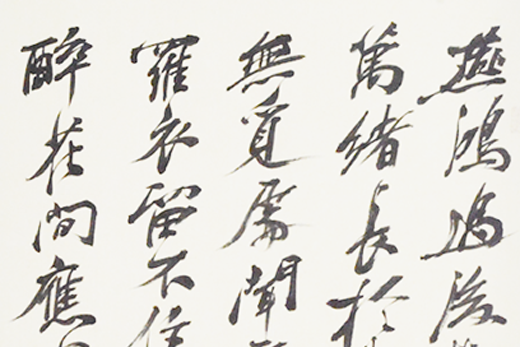 燕鴻過後
萬緒長於
無覓處聞
羅衣留不住
醉花間應